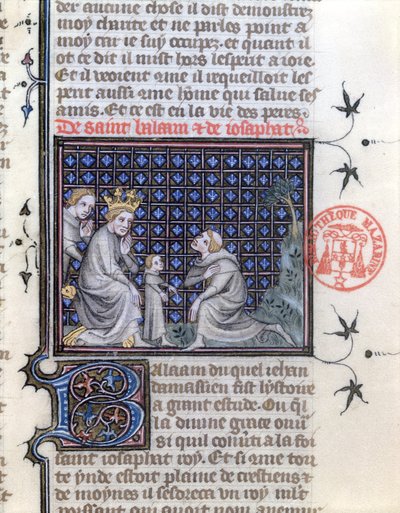 der aucune chose il dist demonstrez
moy charite et ne parles point a
moy car ie suy occupez. et quant il
ot ce dit il mist hors lesprit a ioie.
Et il veoient ame il requeilloit les
pent aussi ame home qui salue ses
amis. Et ce est en la vie des peres.
De saint balaam & de iosaphat.
BIBLIOTHÈQUE MAZARINE
Balaam du quel iehan
damascien fist lystoire
a grant estude. Ou
la divine grace
si qui couti a la foi
saint iosaphat roy. Et si ame tou
te ynde estoit plaine de crestiens &
de moynes il sesdreca un roy
puissant qui auoit nom auenine